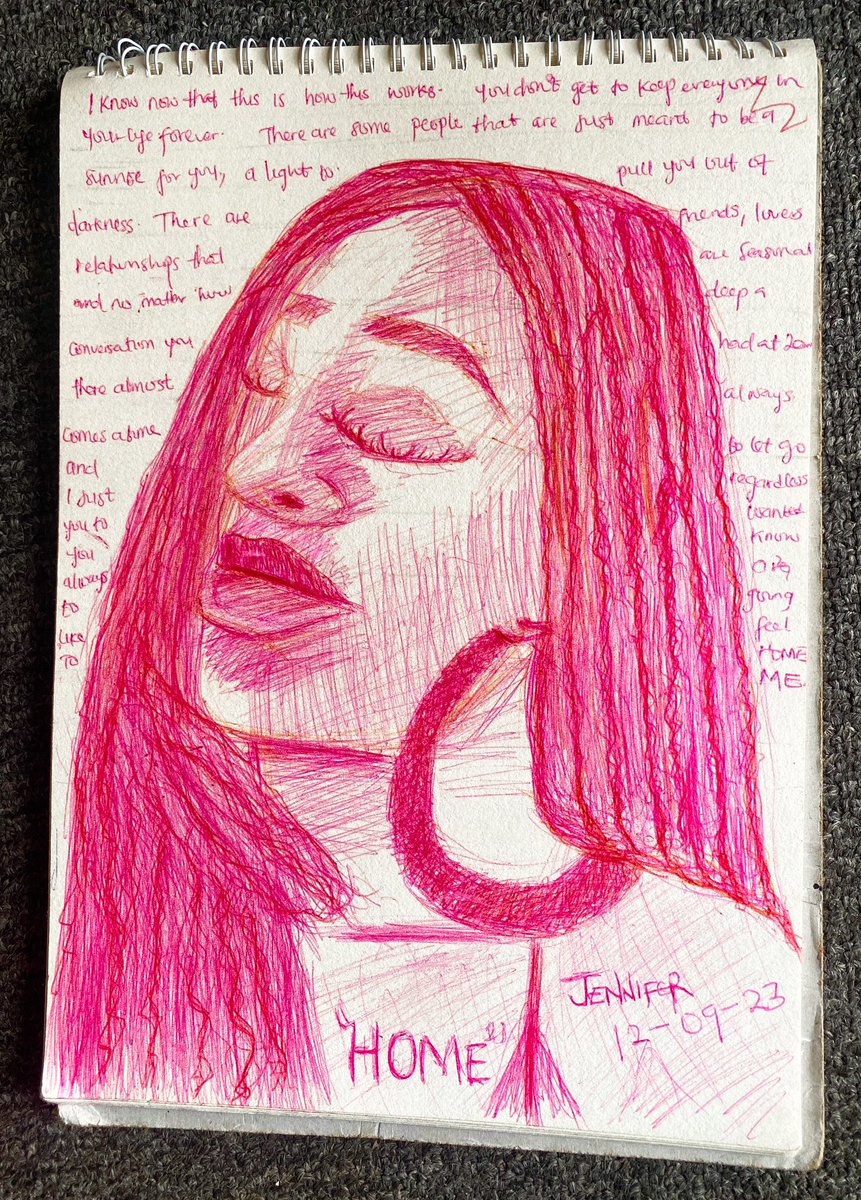 I know now that this is how this works. You don't get to keep everyone in
your life forever. There are some people that are just meant to be a
sunrise for you, a light to pull you out of
darkness. There are friends, lovers
relationships that are seasonal
and no matter how deep a
conversation you had at 2am
there almost always
comes a time to let go
and regardless
I just wanted
you to know
you are
always going
to feel
like HOME
TO ME.
JENNIFER
12-09-23
"HOME"